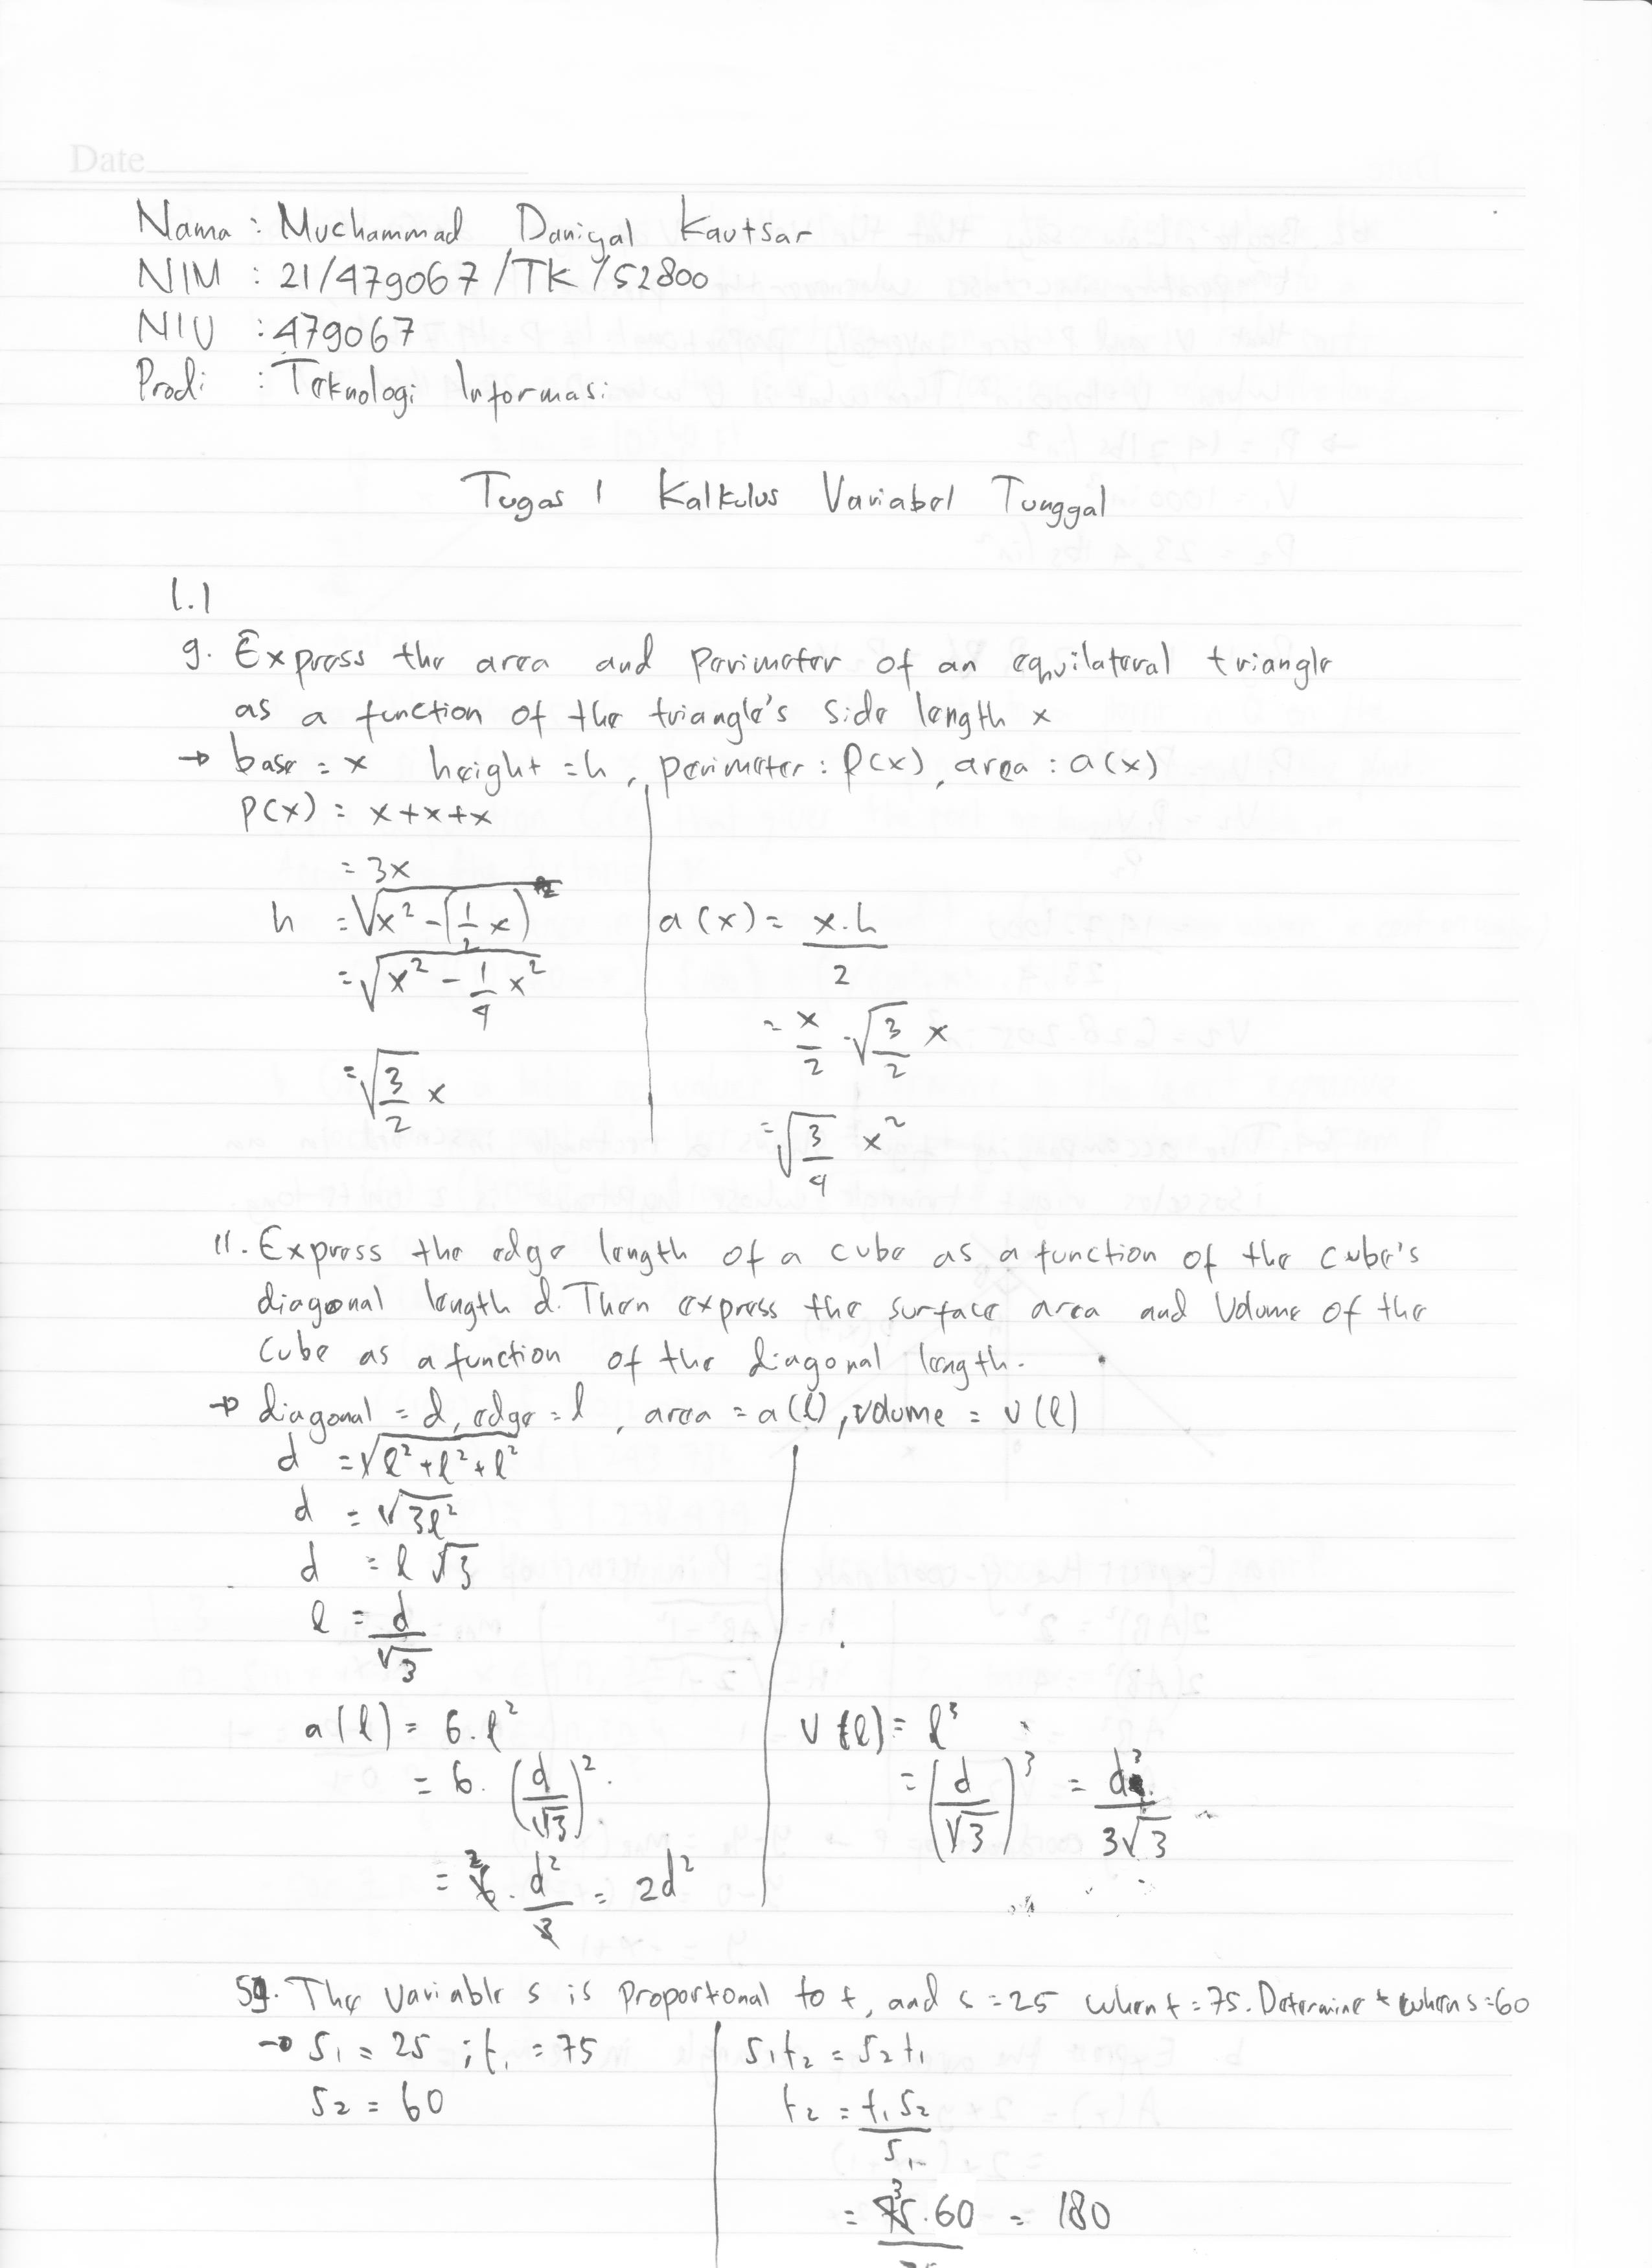 Date
Nama : Muchammad Daniyal Kautsar
NIM : 21/479067/TK/52800
NIU : 479067
Prodi : Teknologi Informasi
Tugas 1 Kalkulus Variabel Tunggal
1.1
9. Express the area and perimeter of an equilateral triangle
as a function of the triangle's side length x
→ base = x height = h, perimeter : P(x), area : a(x)
P(x) = x+x+x
= 3x
h = √(x² - (1/2 x)²)
= √(x² - 1/4 x²)
= √(3/2) x
a(x) = x.h / 2
= x/2 . √(3/2) x
= √(3/4) x²
11. Express the edge length of a cube as a function of the cube's
diagonal length d. Then express the surface area and volume of the
cube as a function of the diagonal length.
→ diagonal = d, edge = l, area = a(l), volume = v(l)
d = √(l² + l² + l²)
d = √(3l²)
d = l √3
l = d/√3
a(l) = 6.l²
= 6. (d/√3)²
= 6 2 . d²/3 = 2d²
v(l) = l³
= (d/√3)³ = d³/3√3
59. The variable s is proportonal to t, and s = 25 when t = 75. Determine t when s = 60
→ s₁ = 25 ; t₁ = 75
s₂ = 60
s₁t₂ = s₂t₁
t₂ = t₁s₂/s₁
= 75 3 . 60 = 180